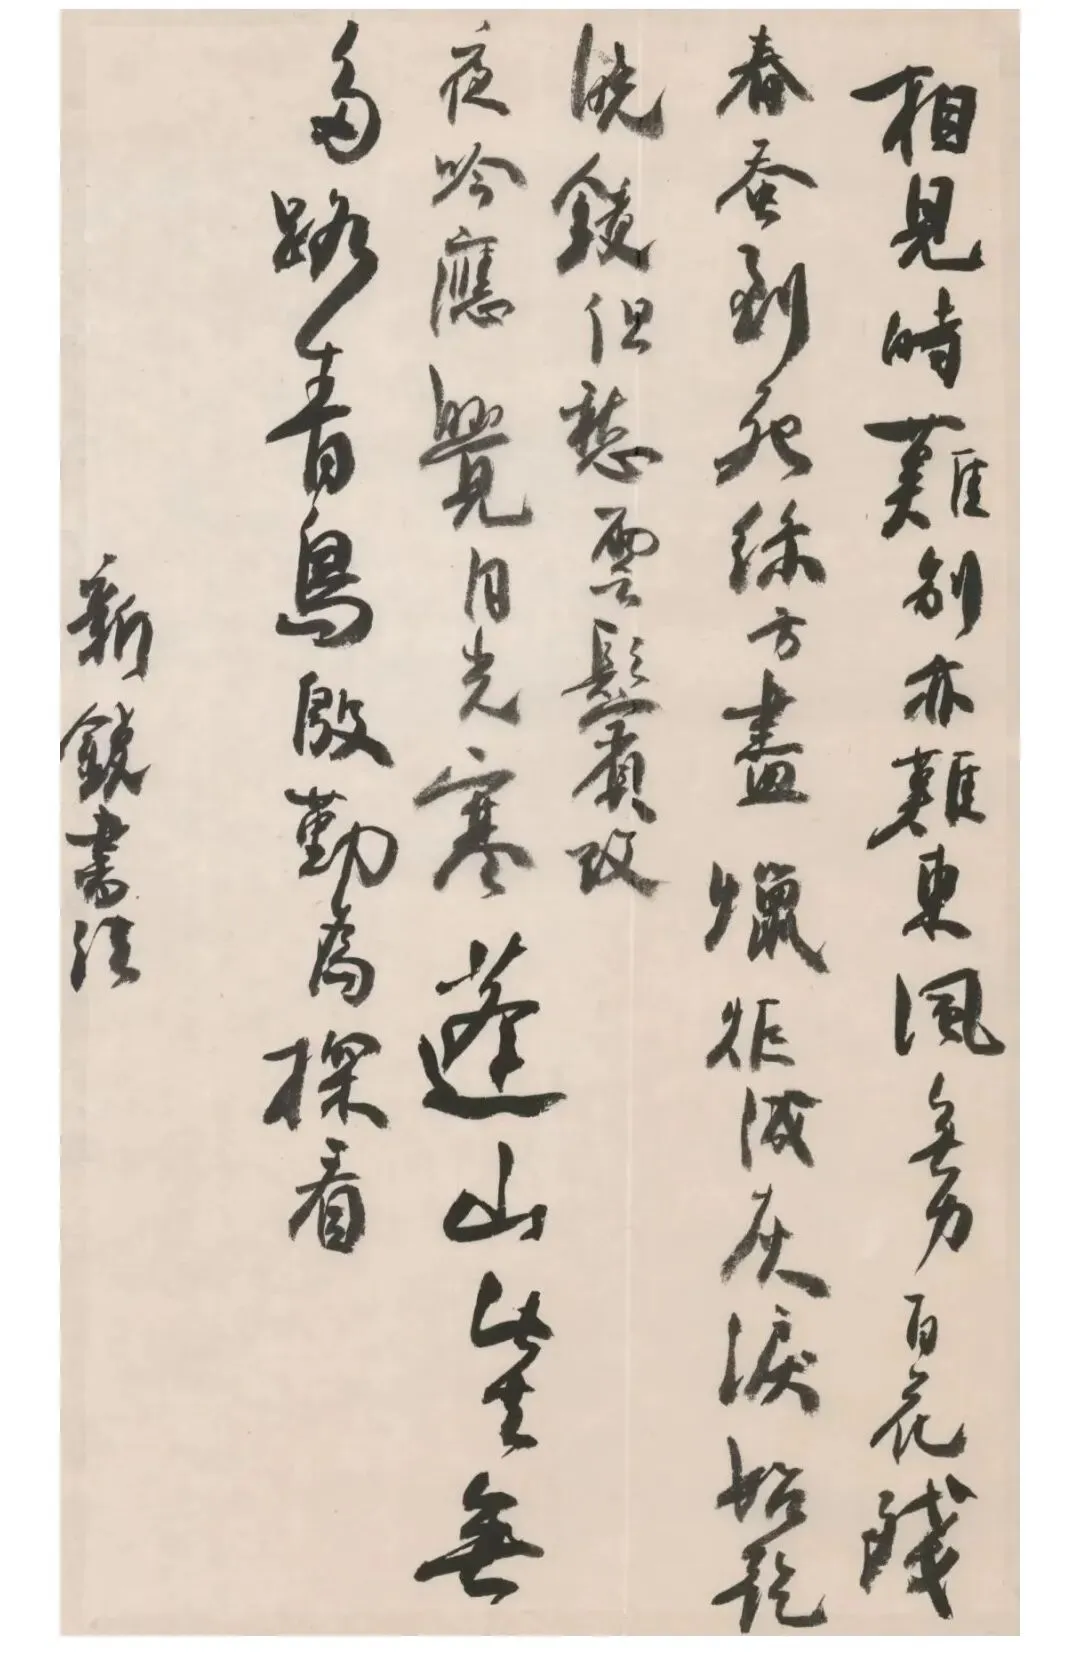 相見時難別亦難東風無力百花殘
春蚕到死絲方盡蠟炬成灰淚始乾
曉鏡但愁雲鬢改
夜吟應覺月光寒蓬山此去無
多路青鳥殷勤為探看
新銳書法